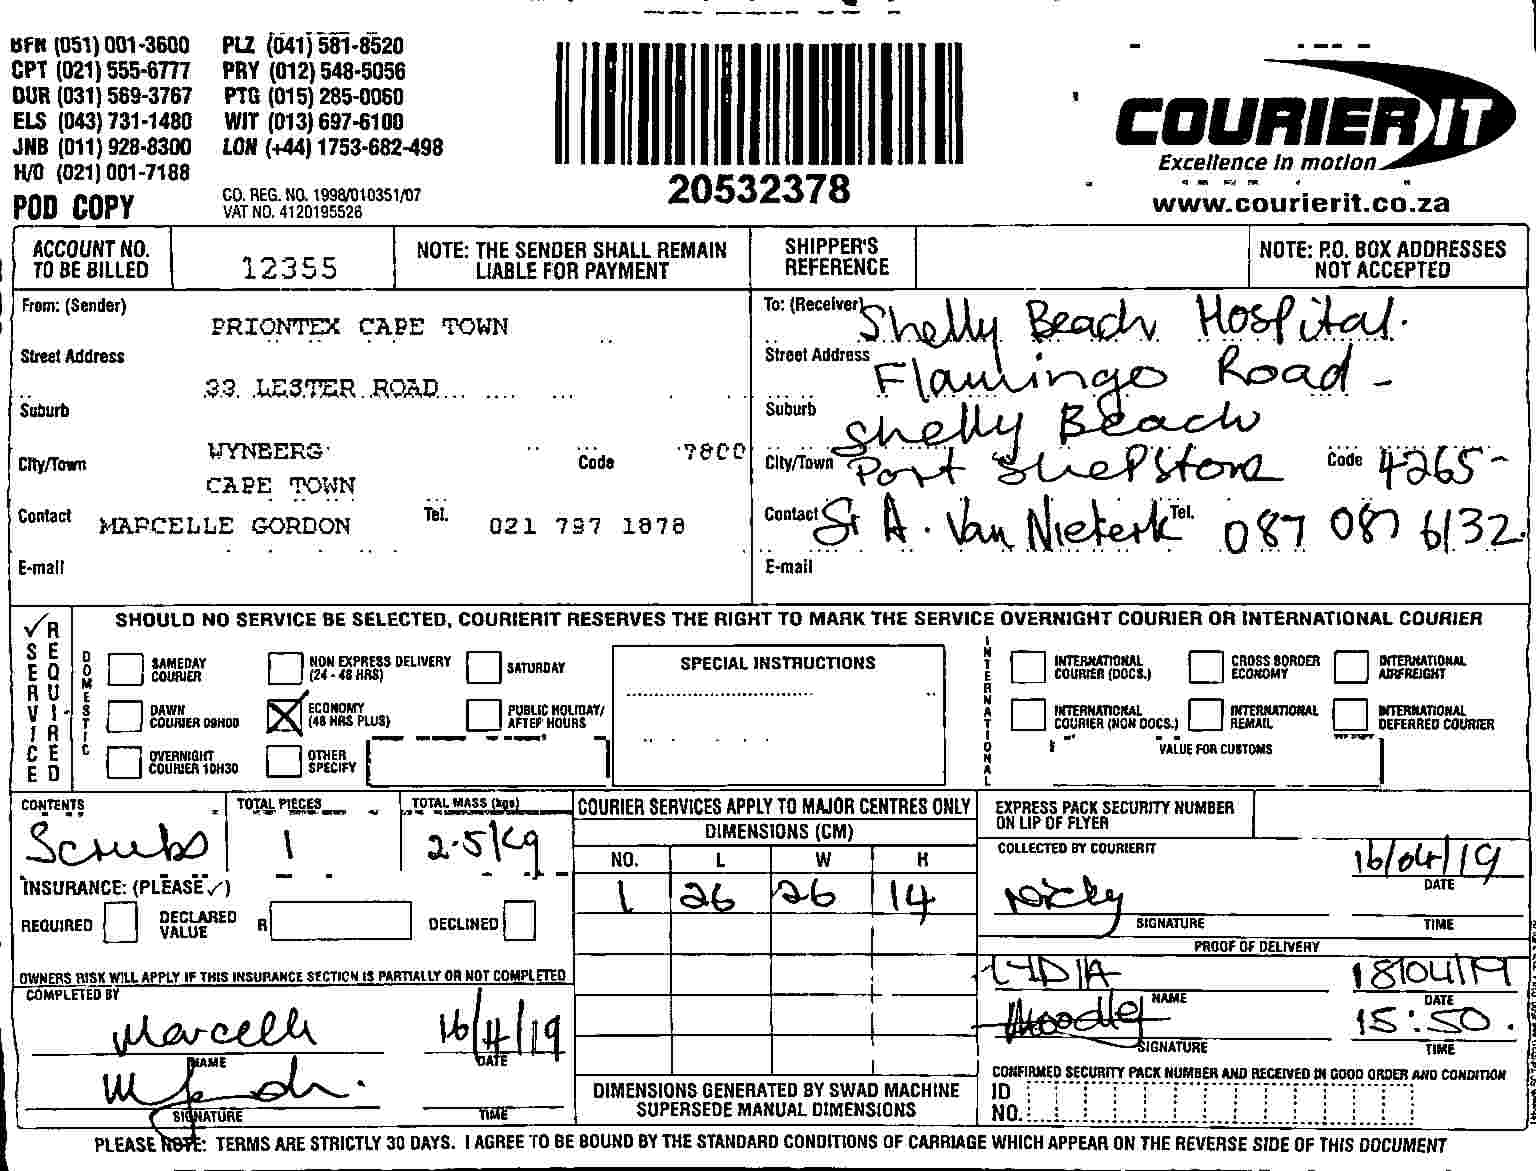 BFN (051) 001-3600 PLZ (041) 581-8520
CPT (021) 555-6777 PRY (012) 548-5056
DUR (031) 569-3767 PTG (015) 285-0060
ELS (043) 731-1480 WIT (013) 697-6100
JNB (011) 928-8300 LON (+44) 1753-682-498
H/O (021) 001-7188
POD COPY
CO. REG. NO. 1998/010351/07
VAT NO. 4120195526
20532378
COURIER IT
Excellence in motion
www.courierit.co.za
ACCOUNT NO. TO BE BILLED
12355
NOTE: THE SENDER SHALL REMAIN LIABLE FOR PAYMENT
SHIPPER'S REFERENCE
NOTE: P.O. BOX ADDRESSES NOT ACCEPTED
From: (Sender) PRIONTEX CAPE TOWN
Street Address
33 LESTER ROAD
Suburb
WYNBERG
City/Town Code 7800
CAPE TOWN
Contact MARCELLE GORDON Tel. 021 797 1878
E-mail
To: (Receiver) Shelly Beach Hospital.
Street Address Flamingo Road -
Suburb Shelly Beach
City/Town Port Shepstone Code 4265-
Contact Sr A. Van Niekerk Tel. 087 087 6132.
E-mail
✓ SERVICE REQUIRED
SHOULD NO SERVICE BE SELECTED, COURIERIT RESERVES THE RIGHT TO MARK THE SERVICE OVERNIGHT COURIER OR INTERNATIONAL COURIER
DOMESTIC
SAMEDAY COURIER
NON EXPRESS DELIVERY (24 - 48 HRS)
SATURDAY
DAWN COURIER 09H00
ECONOMY (48 HRS PLUS)
PUBLIC HOLIDAY/ AFTER HOURS
OVERNIGHT COURIER 10H30
OTHER SPECIFY
SPECIAL INSTRUCTIONS
INTERNATIONAL
INTERNATIONAL COURIER (DOCS.)
CROSS BORDER ECONOMY
INTERNATIONAL AIRFREIGHT
INTERNATIONAL COURIER (NON DOCS.)
INTERNATIONAL REMAIL
INTERNATIONAL DEFERRED COURIER
VALUE FOR CUSTOMS
CONTENTS TOTAL PIECES TOTAL MASS (kgs)
Scrubs 1 2.5kg
INSURANCE: (PLEASE ✓)
REQUIRED DECLARED VALUE R DECLINED
OWNERS RISK WILL APPLY IF THIS INSURANCE SECTION IS PARTIALLY OR NOT COMPLETED
COMPLETED BY
Marcelle 16/4/19
NAME DATE
SIGNATURE TIME
COURIER SERVICES APPLY TO MAJOR CENTRES ONLY
DIMENSIONS (CM)
NO. L W H
1 26 26 14
DIMENSIONS GENERATED BY SWAD MACHINE SUPERSEDE MANUAL DIMENSIONS
EXPRESS PACK SECURITY NUMBER ON LIP OF FLYER
COLLECTED BY COURIERIT
16/04/19
DATE
Nicky
SIGNATURE TIME
PROOF OF DELIVERY
LYDIA 18/04/19
NAME DATE
Moodley 15:50.
SIGNATURE TIME
CONFIRMED SECURITY PACK NUMBER AND RECEIVED IN GOOD ORDER AND CONDITION
ID NO.
PLEASE NOTE: TERMS ARE STRICTLY 30 DAYS. I AGREE TO BE BOUND BY THE STANDARD CONDITIONS OF CARRIAGE WHICH APPEAR ON THE REVERSE SIDE OF THIS DOCUMENT